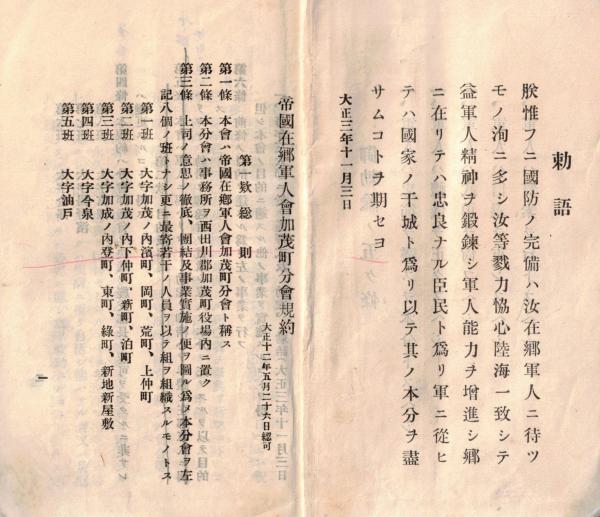 勅語
朕惟フニ國防ノ完備ハ汝在郷軍人ニ待ツ
モノ洵ニ多シ汝等戮力協心陸海一致シテ
益軍人精神ヲ鍛錬シ軍人能力ヲ增進シ郷
ニ在リテハ忠良ナル臣民ト爲リ軍ニ從ヒ
テハ國家ノ干城ト爲リ以テ其ノ本分ヲ盡
サムコトヲ期セヨ
大正三年十一月三日
帝國在郷軍人會加茂町分會規約
大正十二年五月二十六日認可
第一欸 總則
第一條 本會ハ帝國在郷軍人會加茂町分會ト稱ス
第二條 本分會ハ事務所ヲ西田川郡加茂町役場內ニ置ク
第三條 上司ノ意思ノ徹底、團結及事業實施ノ便ヲ圖ル爲メ本分會ヲ左
記八個ノ班トナシ更ニ最寄若干ノ人員ヲ以テ組ヲ組織スルモノトス
第一班 大字加茂ノ內濱町、岡町、荒町、上仲町
第二班 大字加茂ノ內下仲町、新町、泊町
第三班 大字加成ノ內登町、東町、綠町、新地新屋敷
第四班 大字今泉
第五班 大字油戶
一